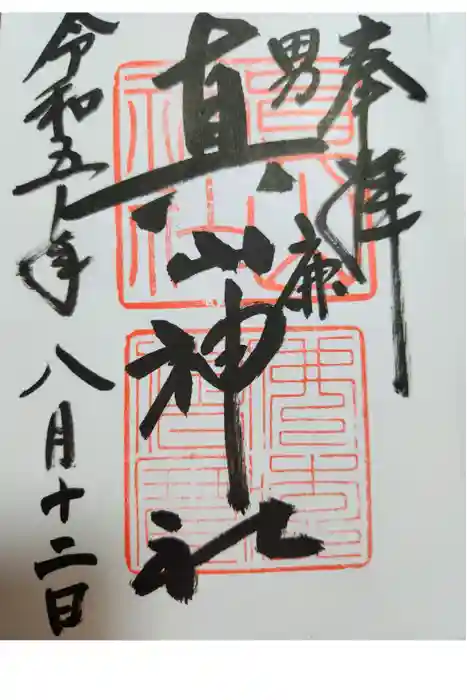 奉拝
男鹿
真山神社
令和五年
八月十二日